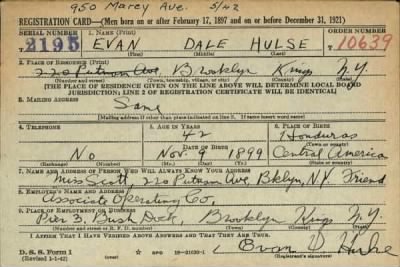 950 Marcy Ave. 5/42
REGISTRATION CARD—(Men born on or after February 17, 1897 and on or before December 31, 1921)
SERIAL NUMBER 1. NAME (Print) ORDER NUMBER
2195 EVAN DALE HULSE 10639
(First) (Middle) (Last)
2. PLACE OF RESIDENCE (Print)
220 Putnam Ave. Brooklyn Kings N.Y.
(Number and street) (Town, township, village, or city) (County) (State)
[THE PLACE OF RESIDENCE GIVEN ON THE LINE ABOVE WILL DETERMINE LOCAL BOARD
JURISDICTION; LINE 2 OF REGISTRATION CERTIFICATE WILL BE IDENTICAL]
3. MAILING ADDRESS
Same
[Mailing address if other than place indicated on line 2. If same insert word same]
4. TELEPHONE 5. AGE IN YEARS 6. PLACE OF BIRTH
42 Honduras
DATE OF BIRTH (Town or county)
No Nov. 9 1899 Central America
(Exchange) (Number) (Mo.) (Day) (Yr.) (State or country)
7. NAME AND ADDRESS OF PERSON WHO WILL ALWAYS KNOW YOUR ADDRESS
Miss Scott, 220 Putnam Ave, Bklyn, N.Y. Friend
8. EMPLOYER'S NAME AND ADDRESS
Associate Operating Co.
9. PLACE OF EMPLOYMENT OR BUSINESS
Pier 3, Bush Dock, Brooklyn Kings N.Y.
(Number and street or R. F. D. number) (Town) (County) (State)
I AFFIRM THAT I HAVE VERIFIED ABOVE ANSWERS AND THAT THEY ARE TRUE.
D. S. S. Form 1 GPO 16—21630-1 Evan D Hulse
(Revised 1-1-42) (Registrant's signature)